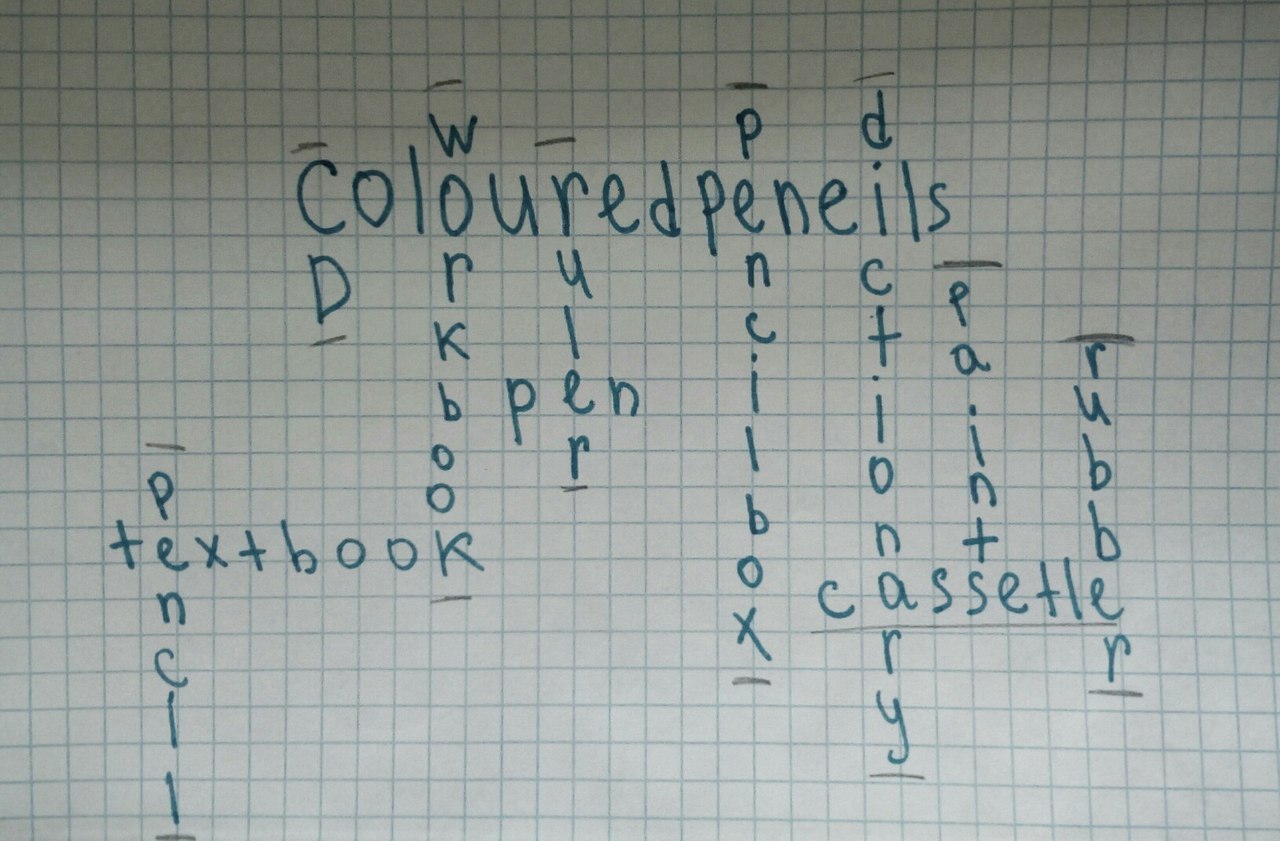 Colouredpeneils
CD
Workbook
ruler
pen
pencilbox
dictionary
paints
rubber
pencil
textbook
cassetle